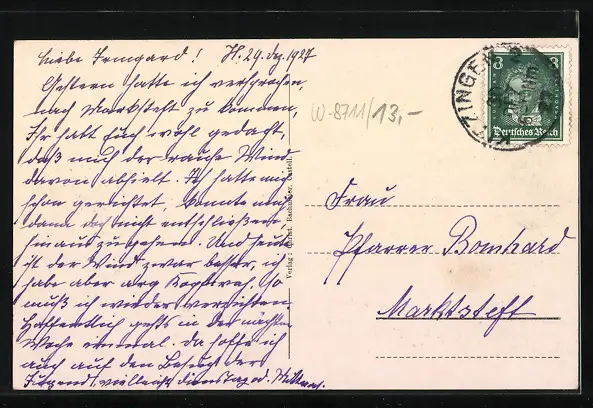 Liebe Irmgard! H. 29. Dez. 1927
Gestern hatte ich versprochen,
nach Marktsteft zu kommen,
Ihr habt Euch wohl gedacht,
daß mich der rauhe Wind
davon abhielt. Ich hatte mich
schon gerichtet, konnte mich
dann doch nicht entschließen
hinaus zu gehen. Und heute
ist der Wind zwar besser, ich
habe aber arg Kopfweh. So
muß ich wieder verzichten.
Hoffentlich gehts in der nächsten
Woche einmal. Da hoffe ich
auch auf den Besuch der
Jugend, vielleicht Dienstag od. Mittwoch.
W-8711/13,-
Verlag: Christ. Castell.
KITZINGEN
3 3
Deutsches Reich
Frau
Pfarrer Bomhard
Marktsteft